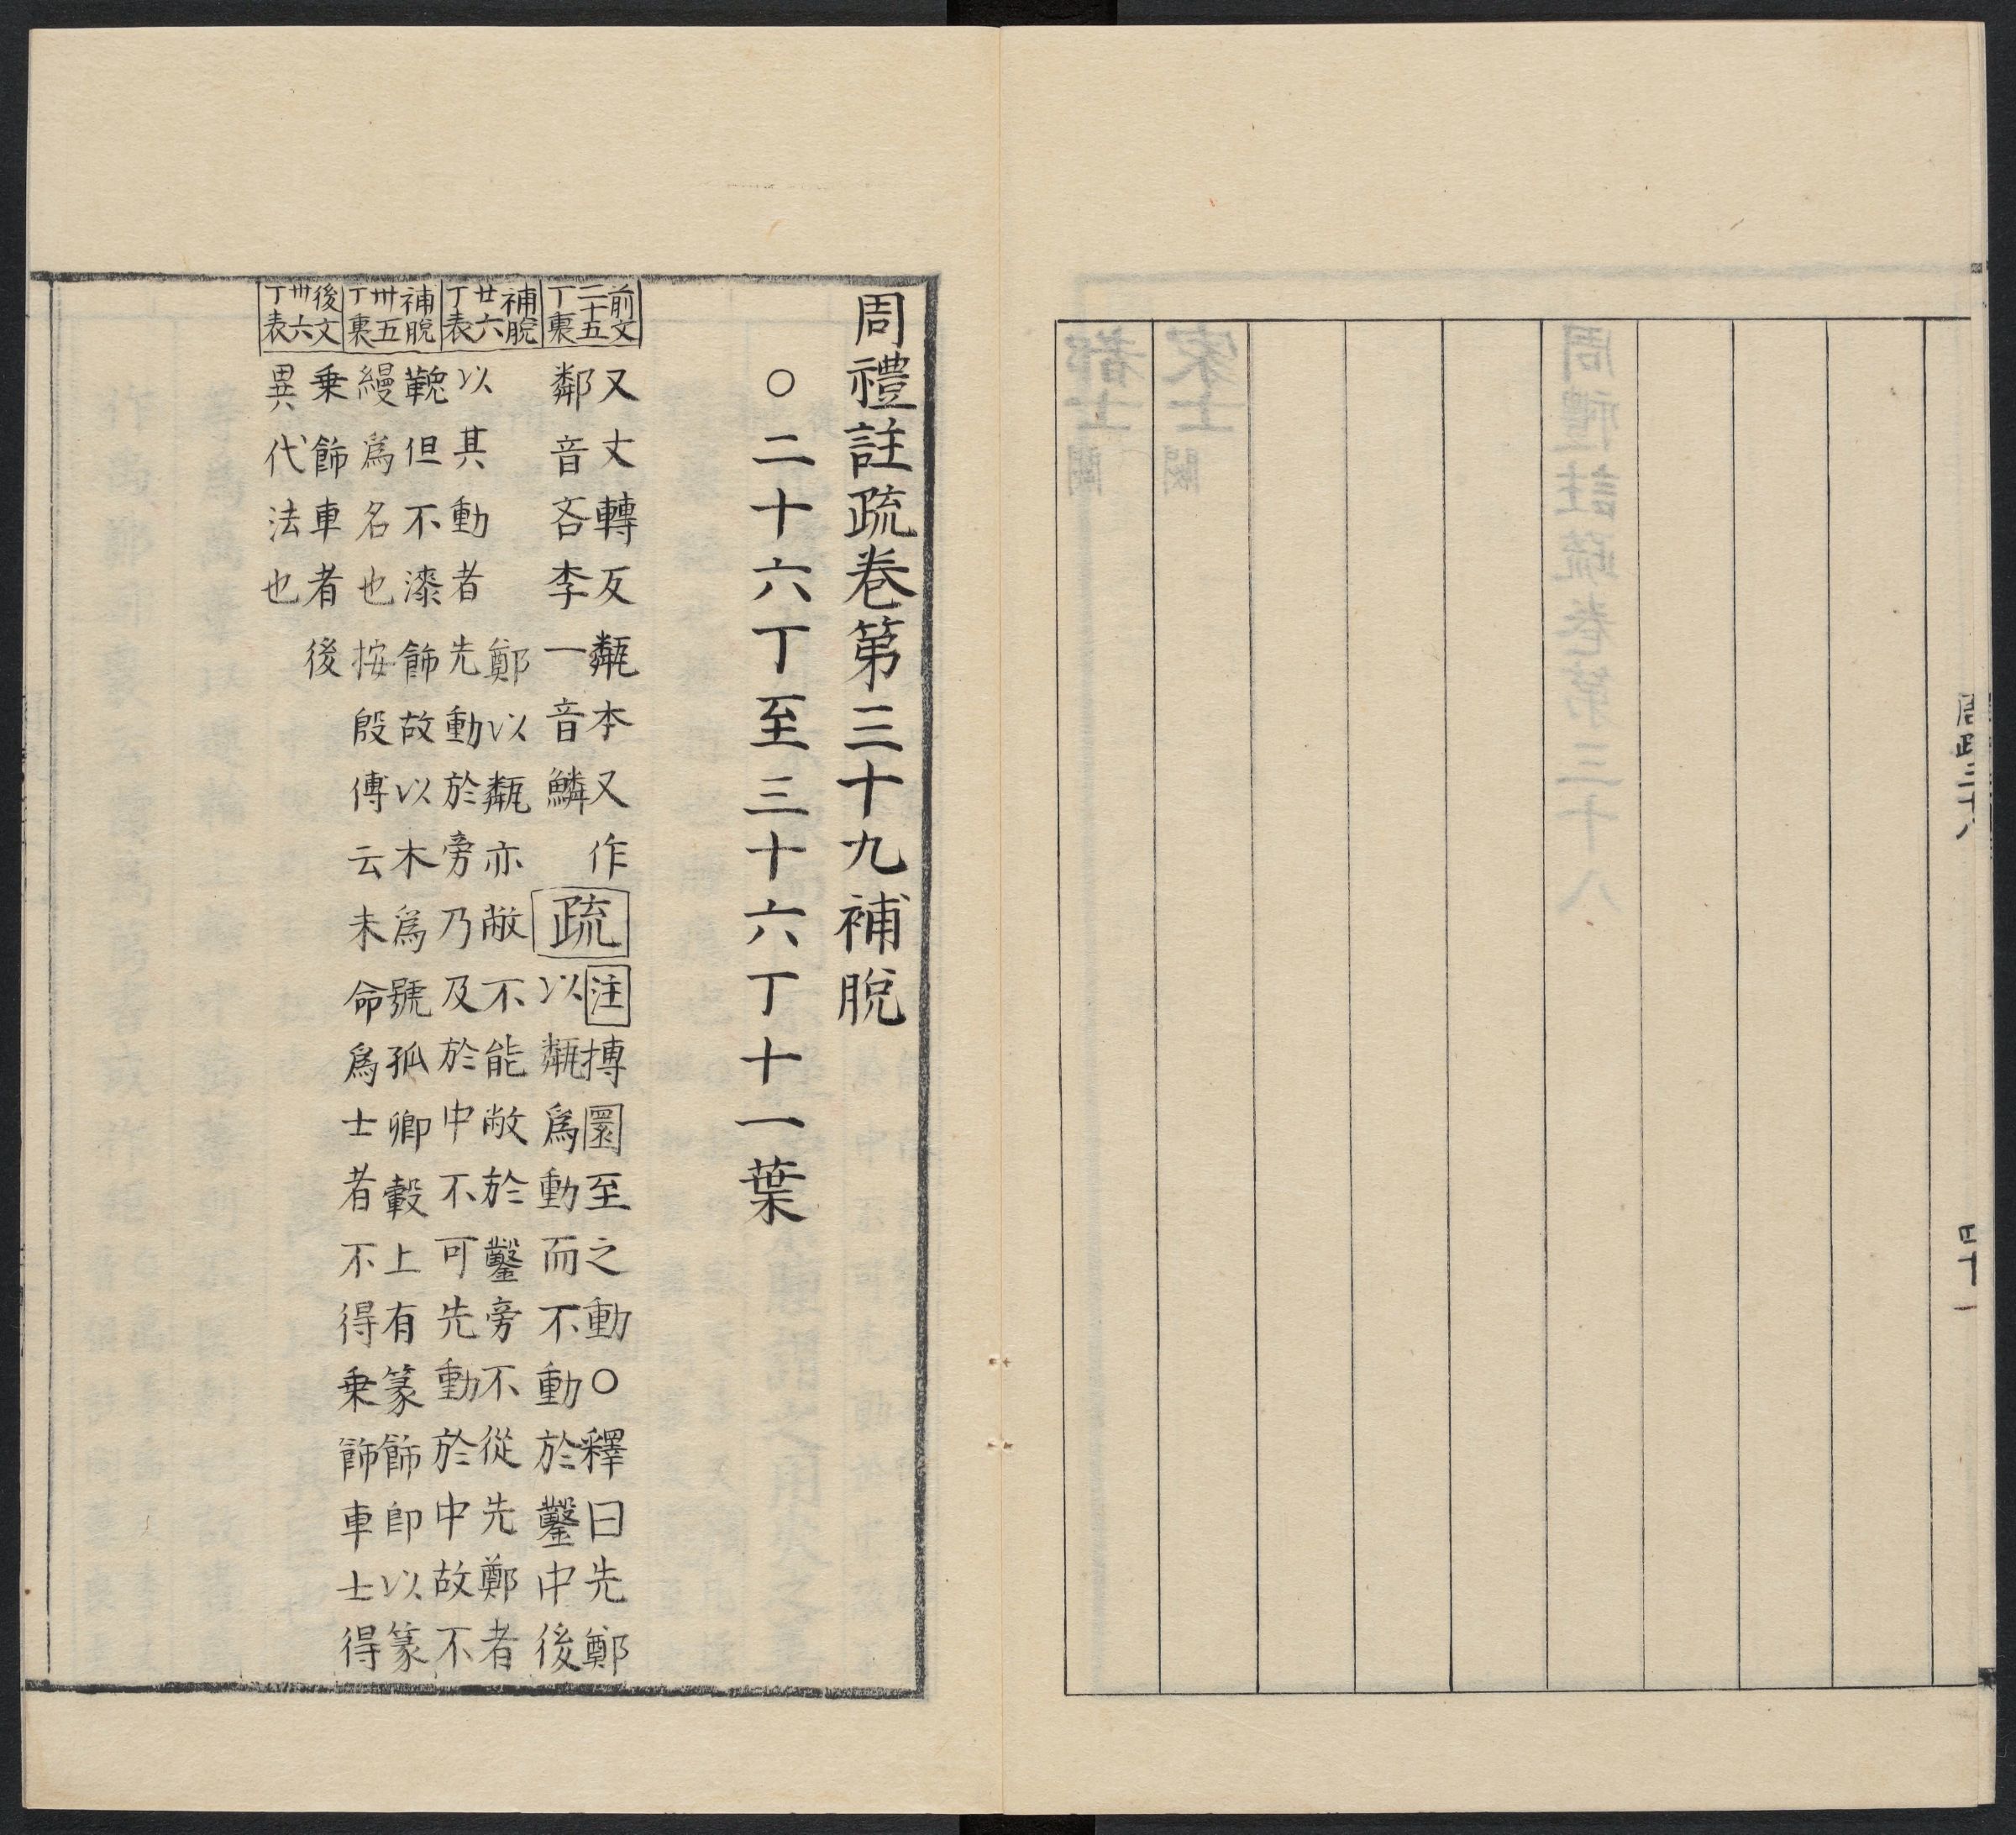 周疏三十八
四十一
周禮註疏卷第三十九補脫
○二十六丁至三十六丁十一葉
前文
二十五
丁裏
又丈轉反甐本又作
鄰音吝李一音鱗
疏
注摶圜至之動○釋曰先鄭
以甐爲動而不動於鑿中後
補脫
廿六
丁表
鄭以甐亦敝不能敝於鑿旁不從先鄭者
以其動者先動於旁乃及於中不可先動於中故不
補脫
卅五
丁裏
鞔但不漆飾故以木爲號孤卿轂上有篆飾卽以篆
縵爲名也按殷傳云未命爲士者不得乗飾車士得
後文
卅六
丁表
乗飾車者後
異代法也